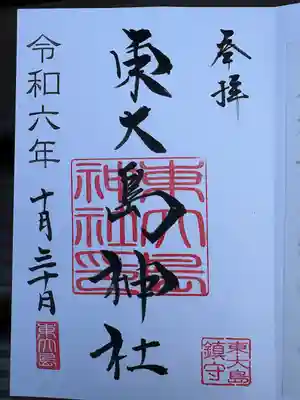 奉拝
東大島神社
東大島神社印
令和六年
十月三十日
東大島
東大島鎮守